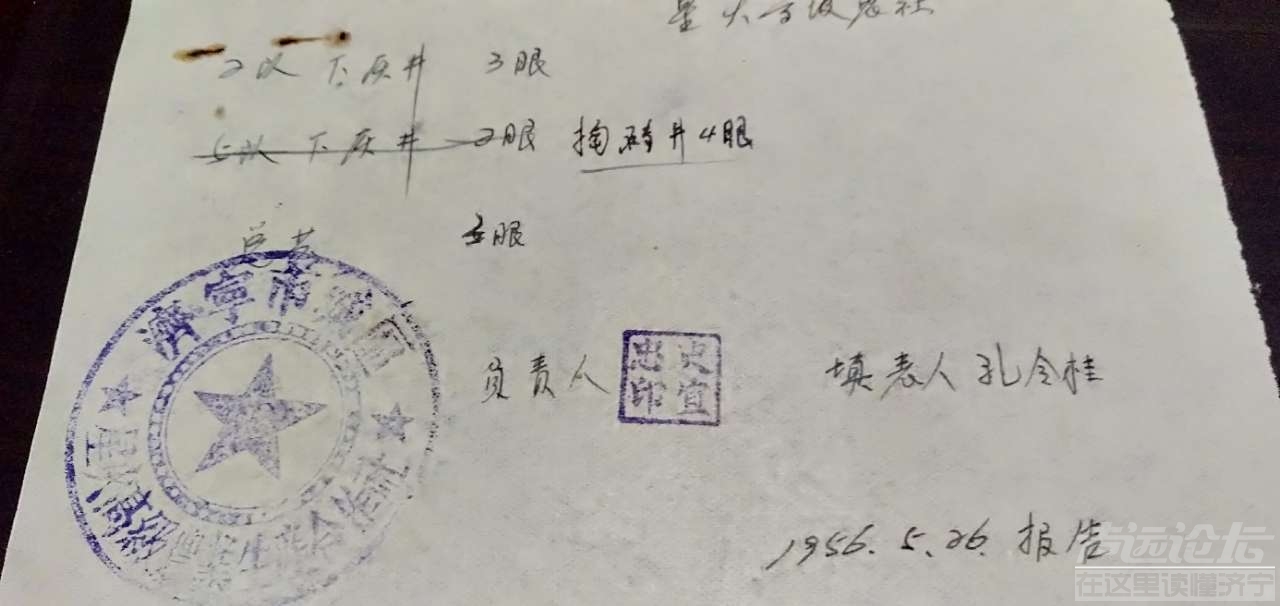 星火高级农社
2以下灰井 3眼
5以下灰井 2眼 掏砖井4眼
总共 5眼
济宁市
高级农业生产合作社
负责人 史宜忠印 填表人 孔令桂
1956.5.26. 报告
运论坛
在这里读懂济宁